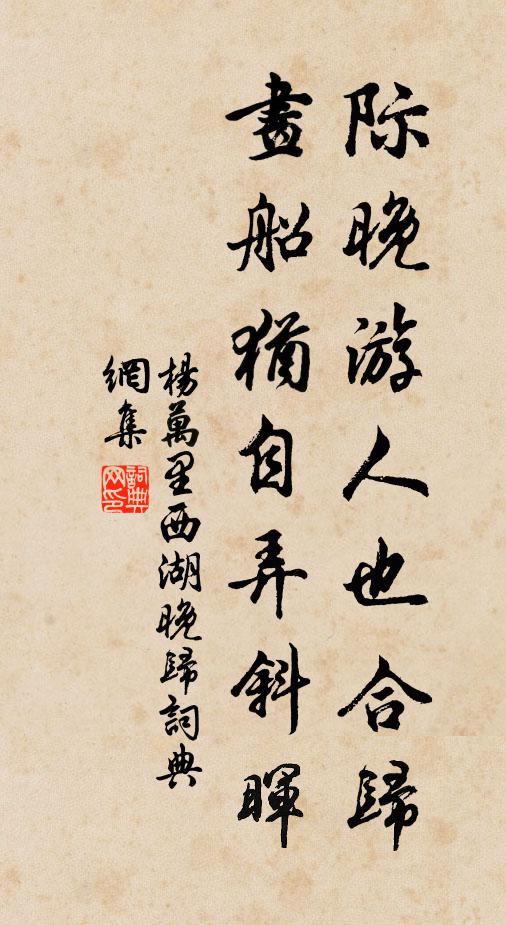 际晚游人也合歸
畫船猶自弄斜暉
楊萬里西湖晚歸詞典
網集
詞典網印